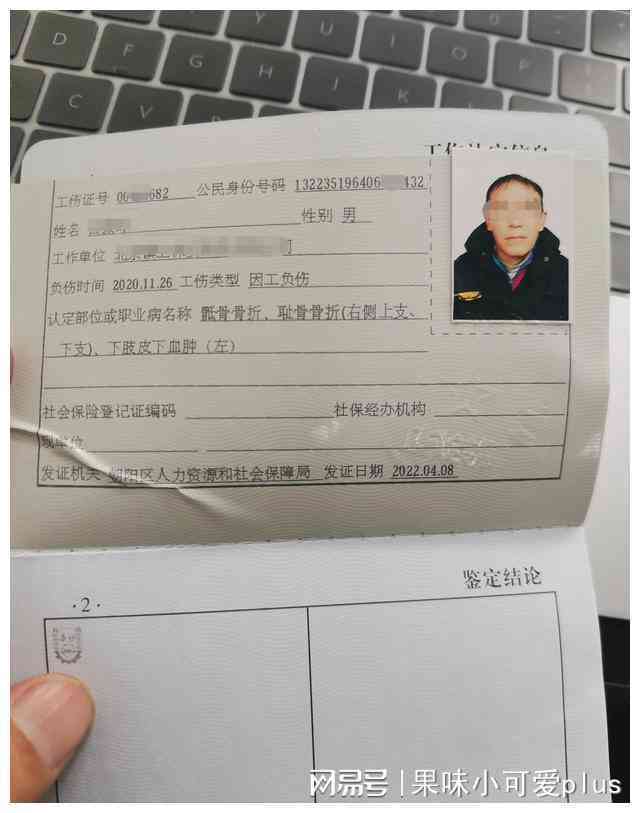 D F G H U I O J K C V B
工伤证号 00 682 公民身份号码 132235196406 432
姓名 性别 男
工作单位
负伤时间 2020.11.26 工伤类型 因工负伤
认定部位或职业病名称 骶骨骨折、耻骨骨折(右侧上支、
下支)、下肢皮下血肿（左）
社会保险登记证编码 社保经办机构
现单位
发证机关 朝阳区人力资源和社会保障局 发证日期 2022.04.08
鉴定结论
·2·
网易号 | 果味小可爱plus